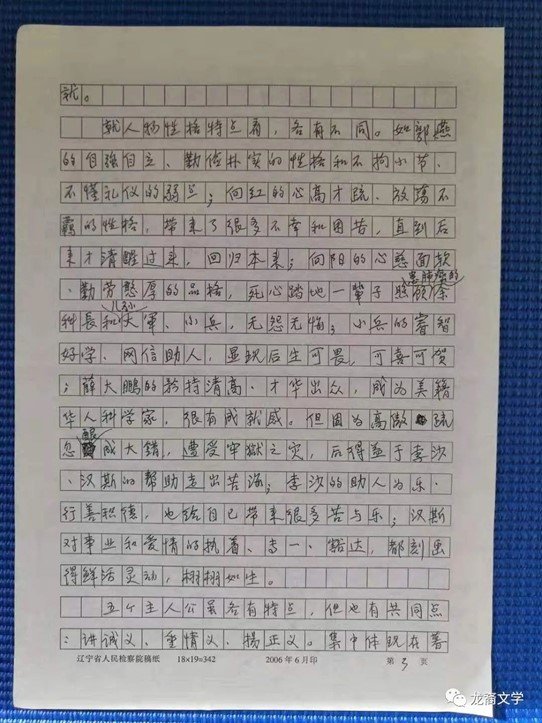 就。
就人物性格特点看，各有不同。如郭燕
的自强自立、勤俭朴实的性格和不拘小节、
不懂礼仪的弱点；向红的心高才疏、放荡不
羁的性格，带来了很多不幸和困苦，直到后
来才清醒过来，回归本来；向阳的心慈面软
患肺痨的
、勤劳憨厚的品格，死心踏地一辈子照顾余
儿孙
科长和大军、小兵，无怨无悔；小兵的睿智
好学、网信助人，显现后生可畏，可喜可贺
；薛大鹏的矜持清高、才华出众，成为美籍
华人科学家，很有成就感。但因为高傲疏
忽酿成大错，遭受牢狱之灾，后得益于李沙
、汉斯的帮助走出苦海；李沙的助人为乐、
行善积德，也给自己带来很多苦与乐；汉斯
对事业和爱情的执着、专一、豁达，都刻画
得鲜活灵动，栩栩如生。
五个主人公虽各有特点，但也有共同点
：讲诚义、重情义、扬正义。集中体现在著
辽宁省人民检察院稿纸 18×19=342 2006年6月印 第3页
龙裔文学